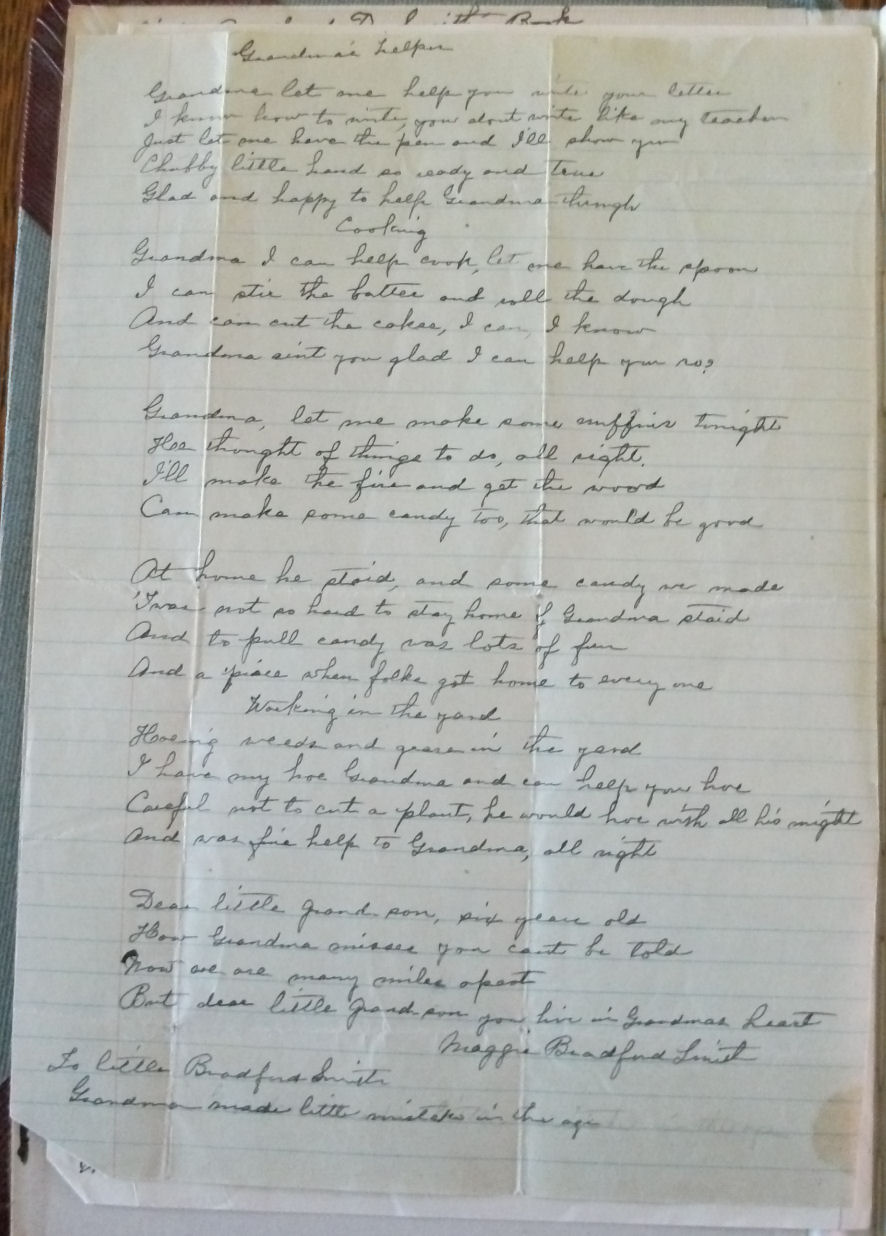 Grandma's helper
Grandma let me help you write your letter
I know how to write, you dont write like my teacher
Just let me have the pen and I'll show you
Chubby little hand so ready and true
Glad and happy to help Grandma though
Cooking
Grandma I can help cook, let me have the spoon
I can stir the batter and roll the dough
And can cut the cakes, I can, I know
Grandma aint you glad I can help you so?
Grandma, let me make some muffins tonight
He thought of things to do, all right.
I'll make the fire and get the wood
Can make some candy too, that would be good
At home he staid, and some candy we made
'Twas not so hard to stay home if Grandma staid
And to pull candy was lots of fun
And a piece when folks got home to every one
Working in the yard
Hoeing weeds and grass in the yard
I have my hoe Grandma and can help you hoe
Careful not to cut a plant, he would hoe with all his might
And was fine help to Grandma, all right
Dear little grand son, six years old
How Grandma misses you cant be told
Now we are many miles apart
But dear little grand son you live in Grandmas heart
Maggie Bradford Smith
To little Bradford Smith
Grandma made little mistake in the age